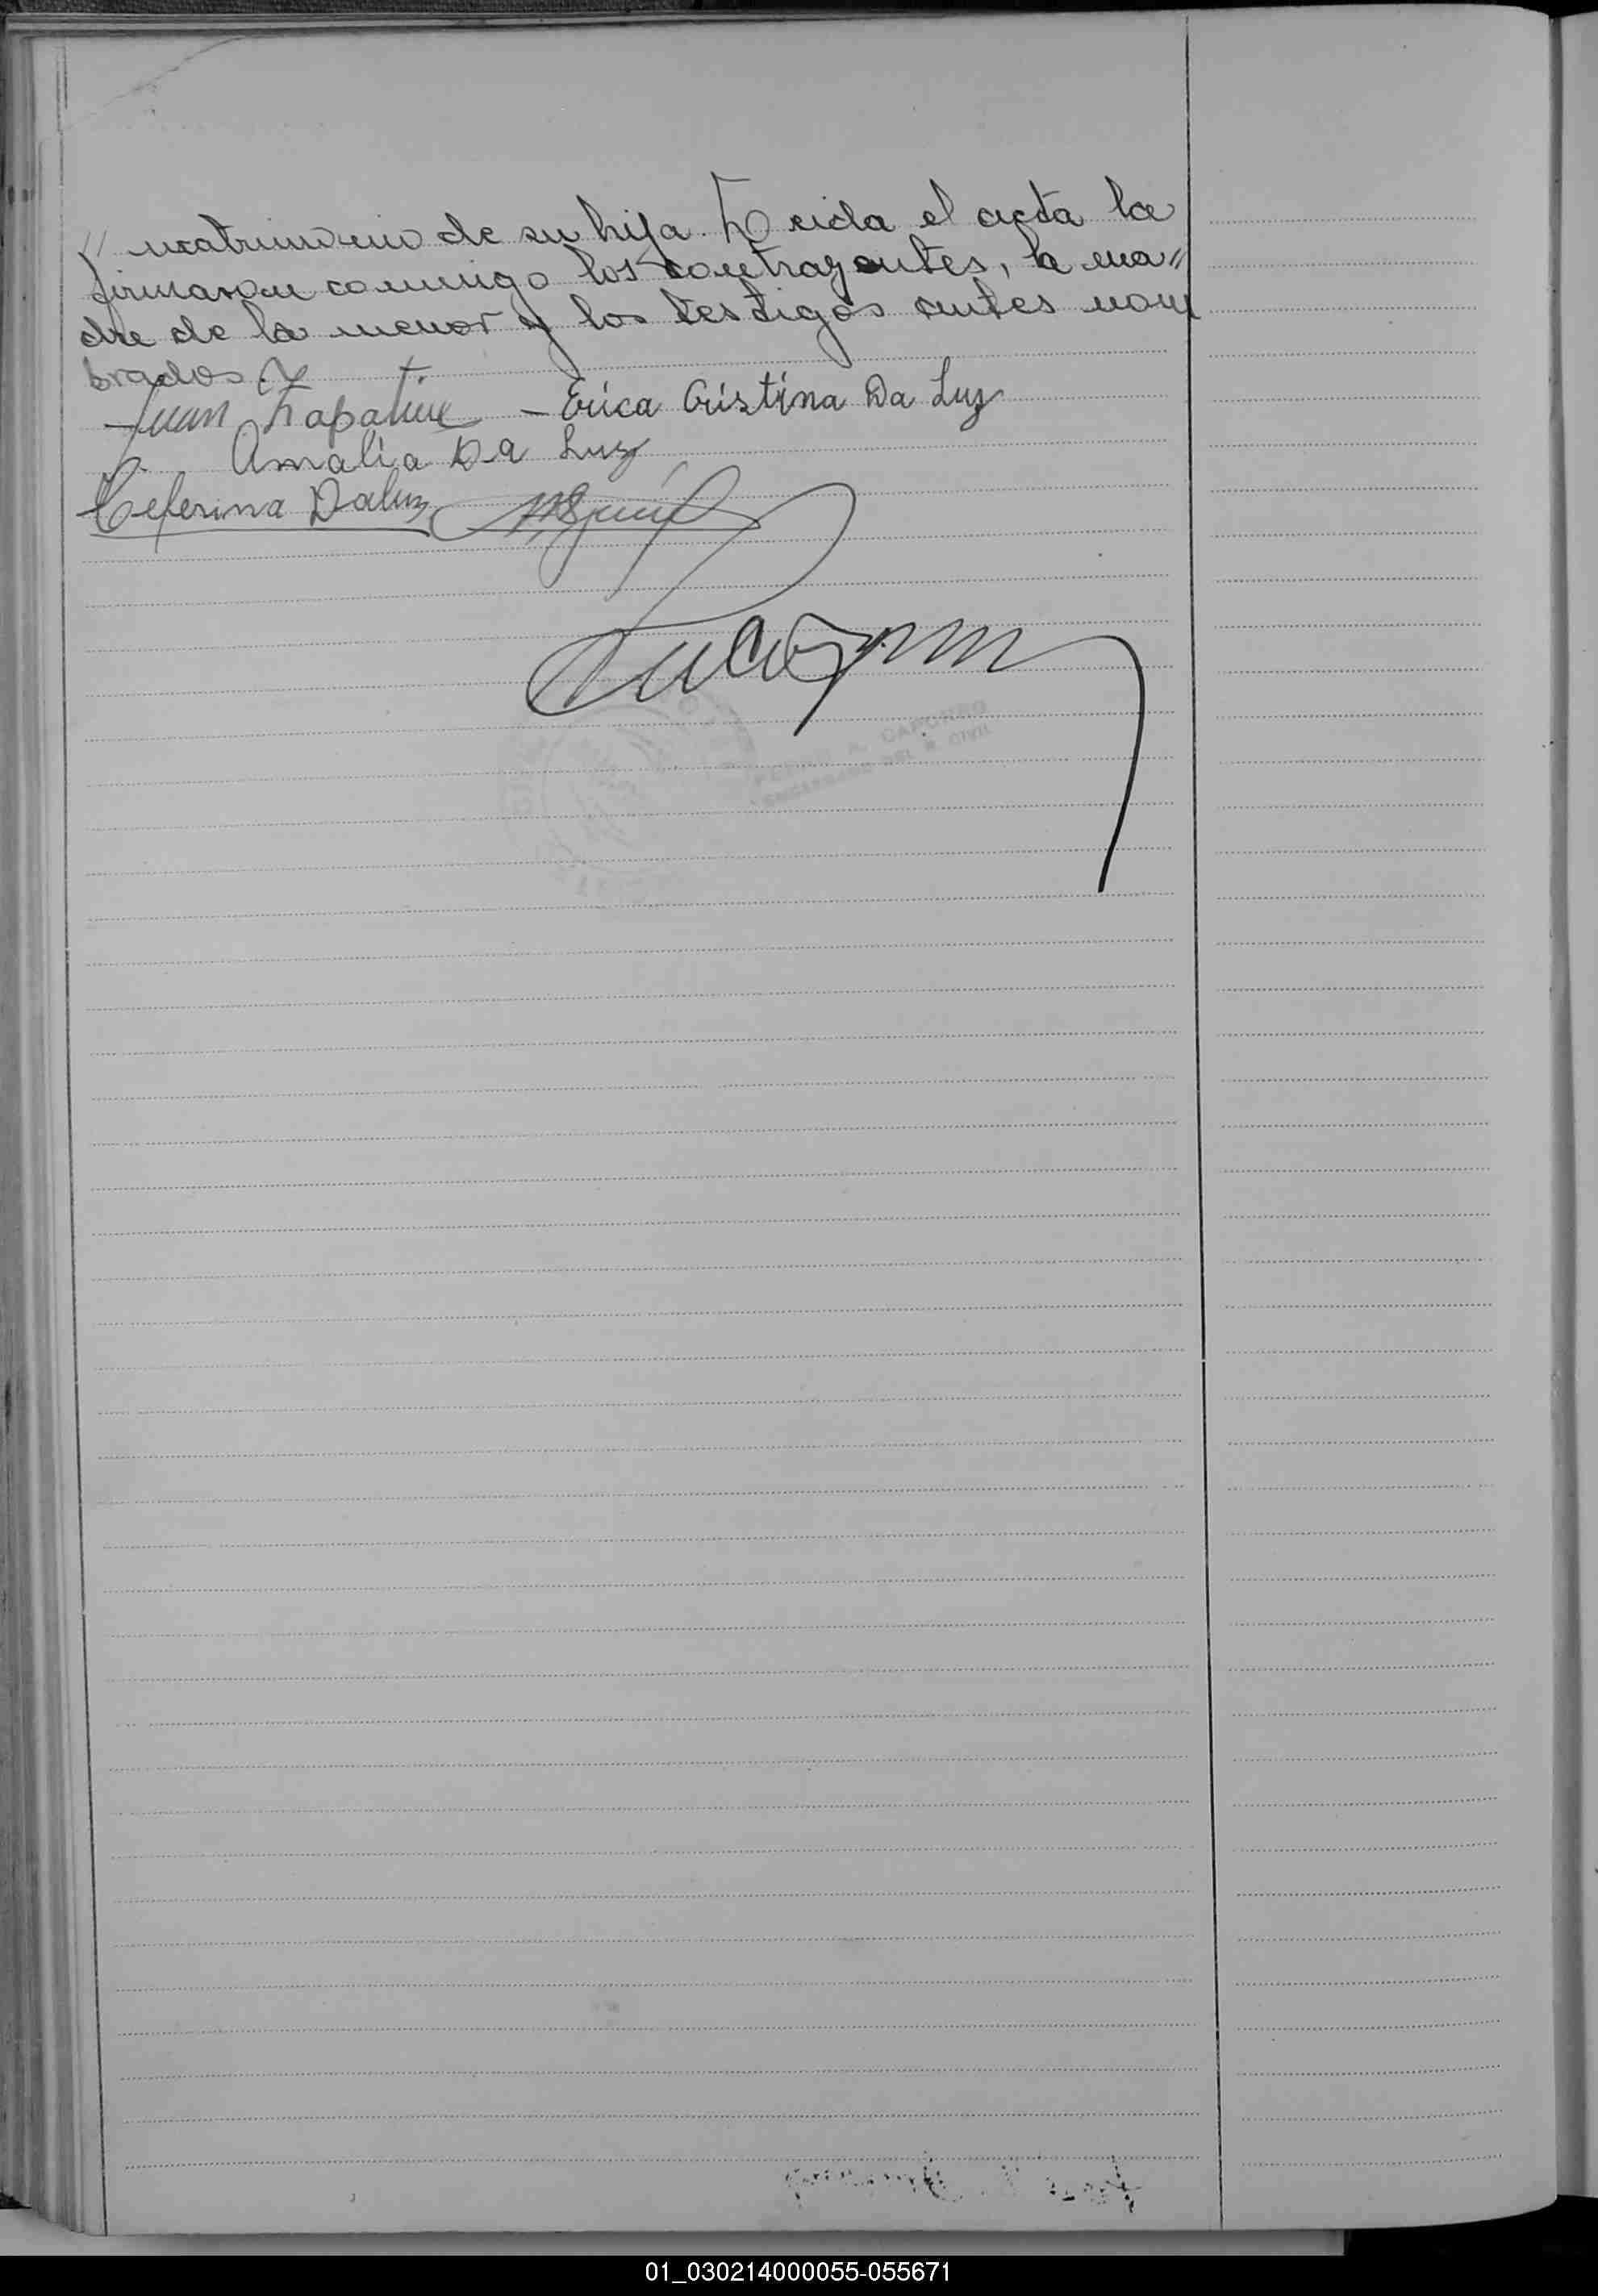 // matrimonio de su hija. Leida el acta la
firmaron conmigo los contrayentes, la ma//
dre de la menor y los testigos antes nom
brados.
Juan Zapatine - Erica Cristina Da Luz
Amalia Da Luz
Ceferina Daluz
A. CAPURRO
ENCARGADO DEL R. CIVIL
01_030214000055-055671